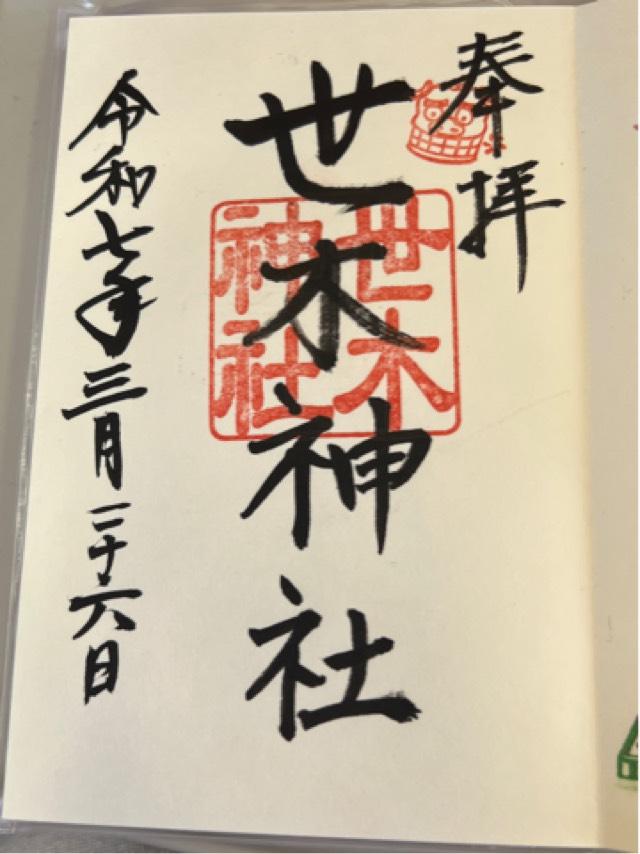 奉拝
世木神社
世木
神社
令和七年三月二十六日